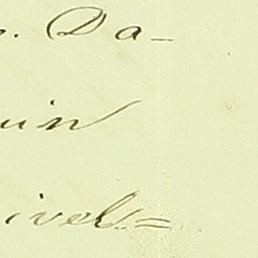 . Da-
uin
ivel=